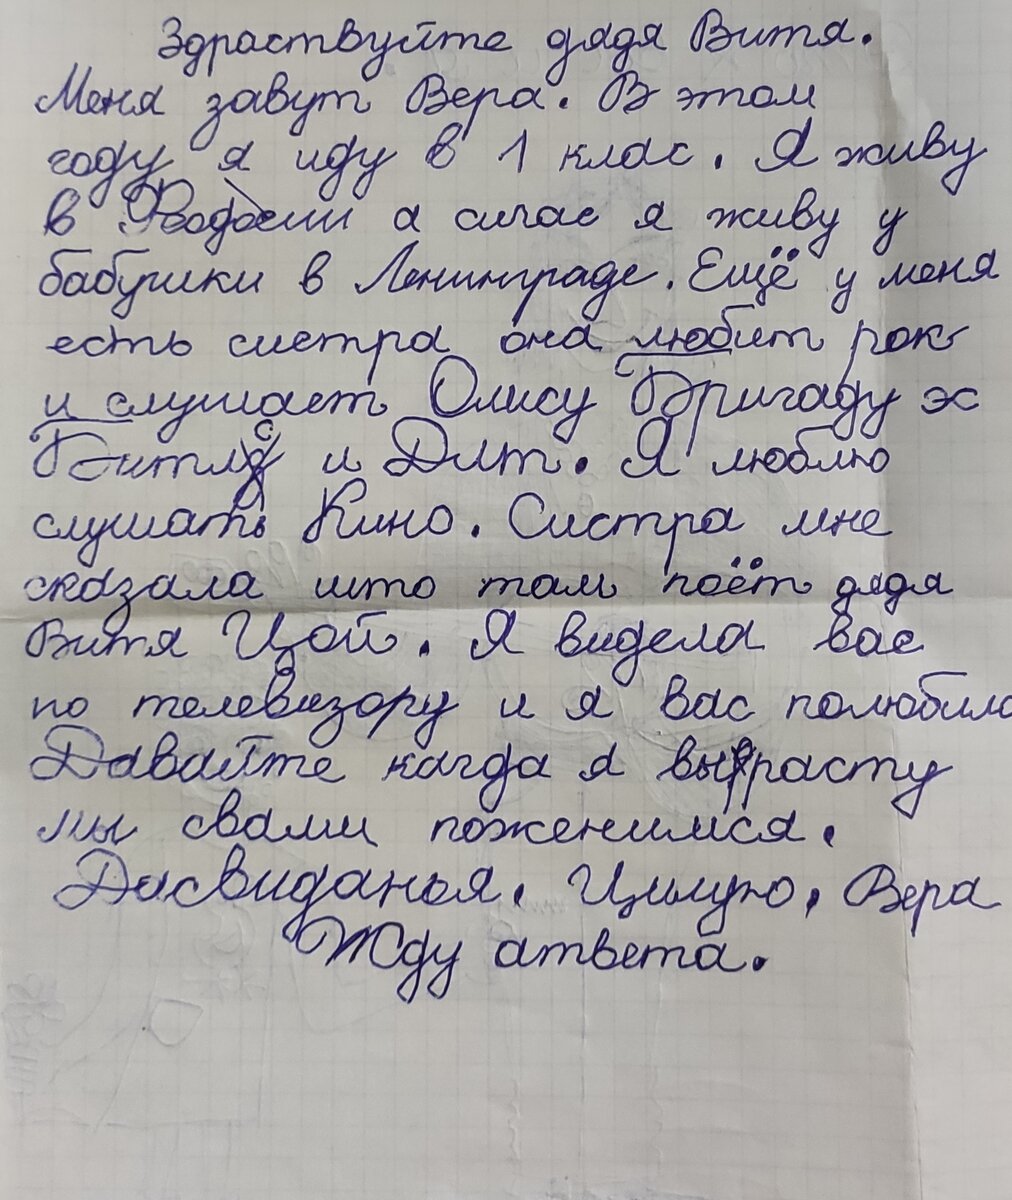 Здраствуйте дядя Витя.
Меня завут Вера. В этом
году я иду в 1 клас. Я живу
в Феодосии а сичас я живу у
бабушки в Ленинграде. Ещё у меня
есть систра она любит рок
и слушает Олису Бригаду эс
Битлс и Дит. Я люблю
слушать Кино. Систра мне
сказала што там поёт дядя
Витя Цой. Я видела вас
по телевизору и я вас полюбила
Давайте кагда я вырасту
мы свами поженимся.
Дасвиданья. Цилую, Вера
Жду атвета.